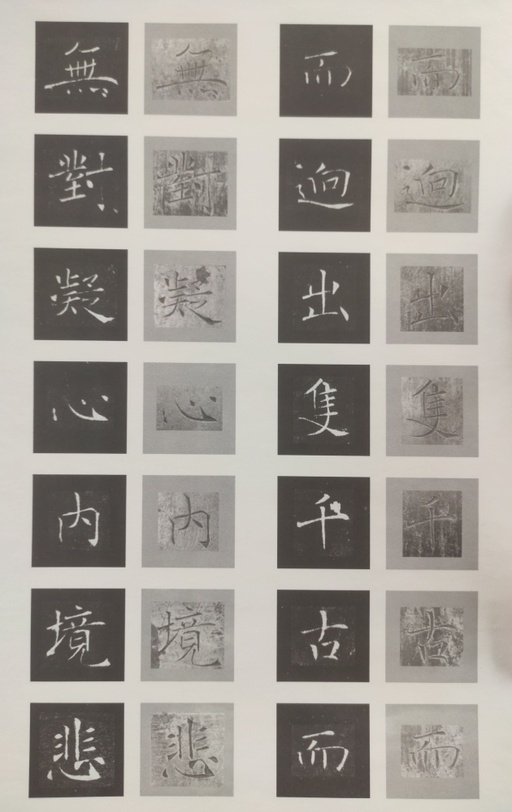 而逈出隻千古而
而逈出隻千古而
無對凝心内境悲
無對凝心内境悲